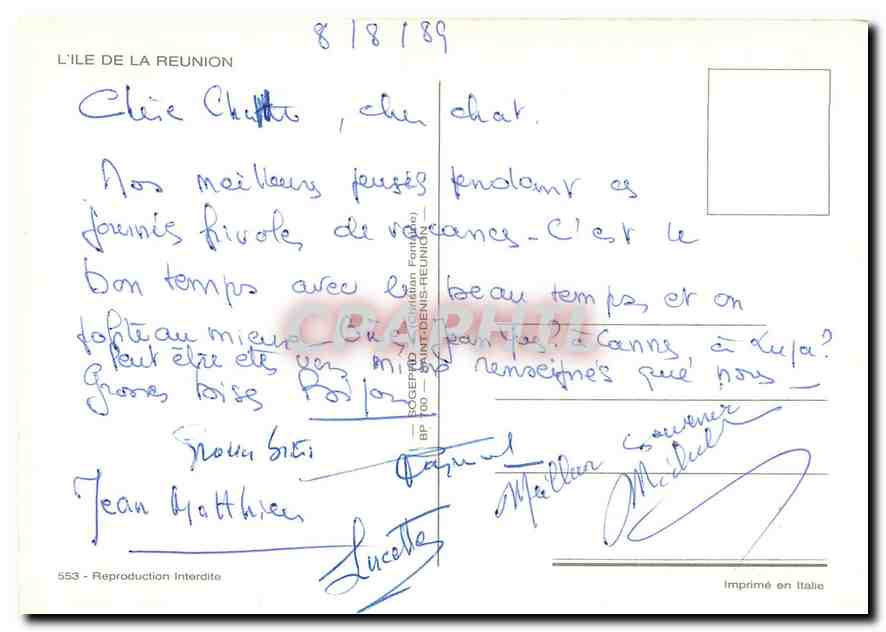 8/8/89
L'ILE DE LA REUNION
Chère Chatte, cher chat.
Nos meilleures pensées pendant ces
journées frivoles de vacances - C'est le
bon temps avec le beau temps et on
profite au mieux - Où est Jean ? à Cannes, à
Peut être êtes vous mieux renseignés que nous
Grosses bises
Gros bisous
Raymond
Meilleur souvenir
Michel
Jean Matthieu
Lucette
SOGEPRO (Christian Fontaine)
BP 700 — SAINT-DENIS-REUNION —
CPAPHIL
553 - Reproduction Interdite
Imprimé en Italie